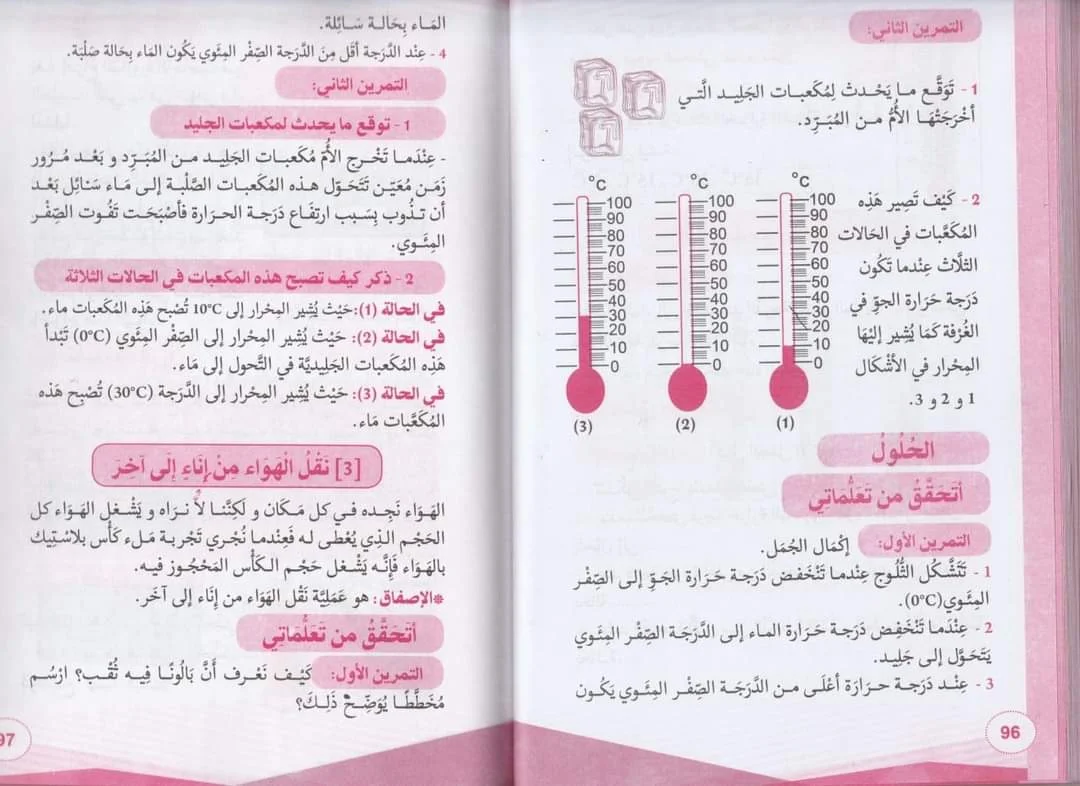 التمرين الثاني:
1 - تَوَقَّع ما يَحْدث لِمُكَعبات الجَلِيد الَّتي
أخْرَجَتْهَا الأُمُّ من المُبَرِّد.
2 - كَيْف تَصِير هَذِه
المُكَعَّبات في الحَالات
الثَّلاث عِندما تَكُون
دَرَجة حَرَارة الجوِّ في
الغُرْفة كَمَا يُشِير إليْهَا
المِحرار في الأشْكَال
1 و 2 و 3.
°C
100
90
80
70
60
50
40
30
20
10
0
(1)
°C
100
90
80
70
60
50
40
30
20
10
0
(2)
°C
100
90
80
70
60
50
40
30
20
10
0
(3)
الحُلُولُ
أتَحَقَّقُ من تَعَلُّمَاتِي
التمرين الأول: إكْمَال الجُمَل.
1 - تَتَشَّكُل الثُّلُوج عِندَمَا تَنْخَفض دَرَجة حَرَارة الجَوِّ إلى الصِّفْر
المِئَوي(0°C).
2 - عِنْدَمَا تَنْخَفِض دَرَجة حَرَارة الماء إلى الدَّرَجَة الصِّفْر المِئَوي
يَتَحَوَّل إلى جَلِيد.
3 - عِنْد دَرَجة حرَارة أعْلَى من الدَّرَجة الصِّفْر المِئَوي يَكُون
96
المَاء بِحَالَة سَائِلة.
4 - عِنْد الدَّرجة أقَل مِنَ الدَّرَجة الصِّفْر المِئَوي يَكُون المَاء بِحَالة صَلْبَة.
التمرين الثاني:
1 - توقع ما يحدث لمكعبات الجليد
- عِنْدَما تَخْرج الأُم مُكَعبات الجَلِيد من المُبَرِّد و بَعْد مُرُور
زَمَن مُعيّن تَتَحَوَّل هذه المُكَعبات الصَّلْبة إلى مَاء سَائل بَعْد
أن تَذُوب بِسَبب ارتفَاع دَرَجة الحرَارة فأصْبَحَت تَفُوت الصِّفْر
المِئَوي.
2 - ذكر كيف تصبح هذه المكعبات في الحالات الثلاثة
في الحالة (1):حَيْث يُشِير المِحْرار إلى 10°C تُصْبح هَذِه المُكَعبات ماء.
في الحالة (2): حَيْث يُشِير المِحْرار إلى الصِّفْر المِئَوي (0°C) تَبْدأ
هَذِه المُكَعبات الجَلِيديَّة في التَّحول إلى مَاء.
في الحالة (3): حَيْث يُشِير المِحْرار إلى الدَّرَجة (30°C) تُصْبح هَذه
المُكَعَّبات مَاء.
[3] نَقْلُ الْهَوَاء مِنْ إنَاءٍ إلَى آخَرَ
الهَوَاء نَجِده في كل مَكَان و لَكِنَّنا لاَ نراه و يَشْغل الهَوَاء كل
الحَجْم الذي يُعْطى له فَعِندمَا نُجْري تَجْربة مَلء كَأس بلاسْتِيك
بالهَوَاء فَإنَّه يَشْغل حَجْم الكَأس المَحْجُوز فيه.
*الإصفاق: هو عَمَليَّة نَقْل الهَوَاء من إنَاء إلى آخَر.
أتَحَقَّقُ من تَعَلُّمَاتِي
التمرين الأول: كَيْف نَعْرف أنَّ بَالُونًا فِيه ثُقْب؟ ارْسُم
مُخَطَّطًا يُوَضِّح ذَلِكَ؟
97